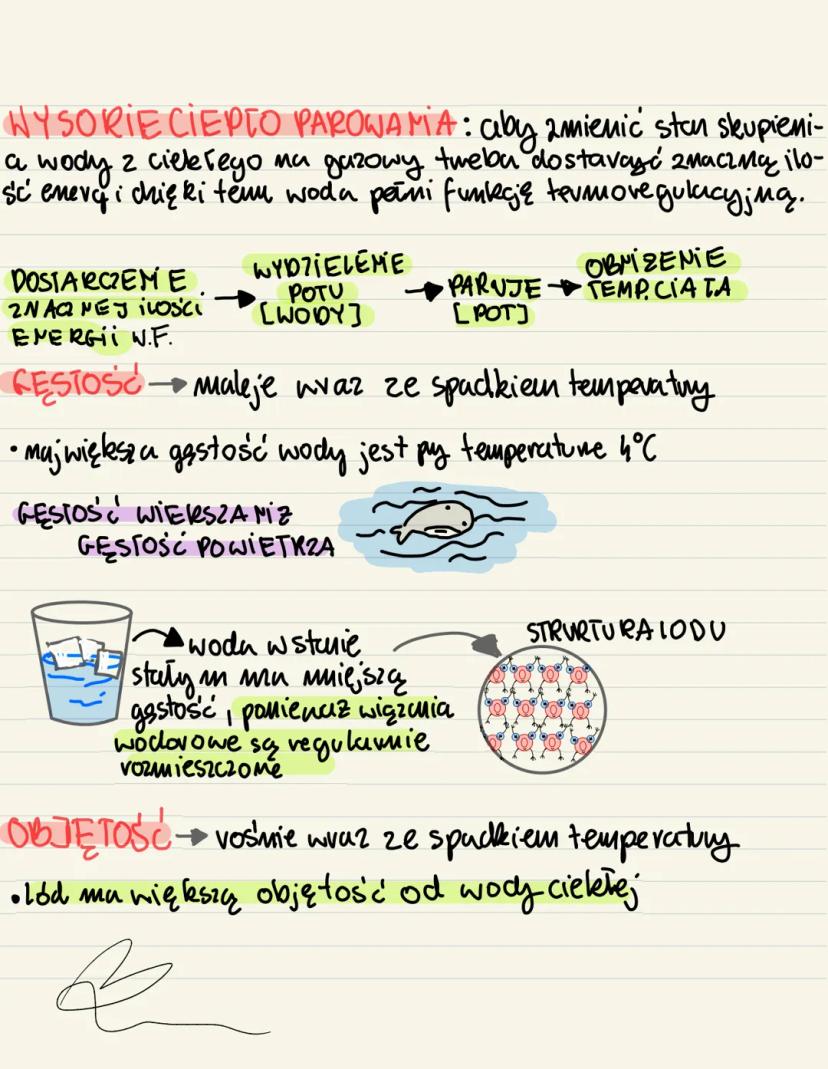 WYSOKIE CIEPŁO PAROWANIA: aby zmienić stan skupieni-
a wody z ciekłego na gazowy trzeba dostarczyć znaczną ilo-
ść energii dzięki temu woda pełni funkcję termoregulacyjną.
DOSTARCZENIE
ZNACZNEJ ILOŚCI
ENERGII W.F.
WYDZIELENIE
POTU
[WODY]
PARUJE
[POT]
OBNIŻENIE
TEMP. CIAŁA
GĘSTOŚĆ → maleje wraz ze spadkiem temperatury
• największa gęstość wody jest przy temperaturze 4°C
GĘSTOŚĆ WIĘKSZA NIŻ
GĘSTOŚĆ POWIETRZA
woda w stanie
stałym ma mniejszą
gęstość, ponieważ wiązania
wodorowe są regularnie
rozmieszczone
STRUKTURA LODU
OBJĘTOŚĆ → rośnie wraz ze spadkiem temperatury
• lód ma większą objętość od wody ciekłej